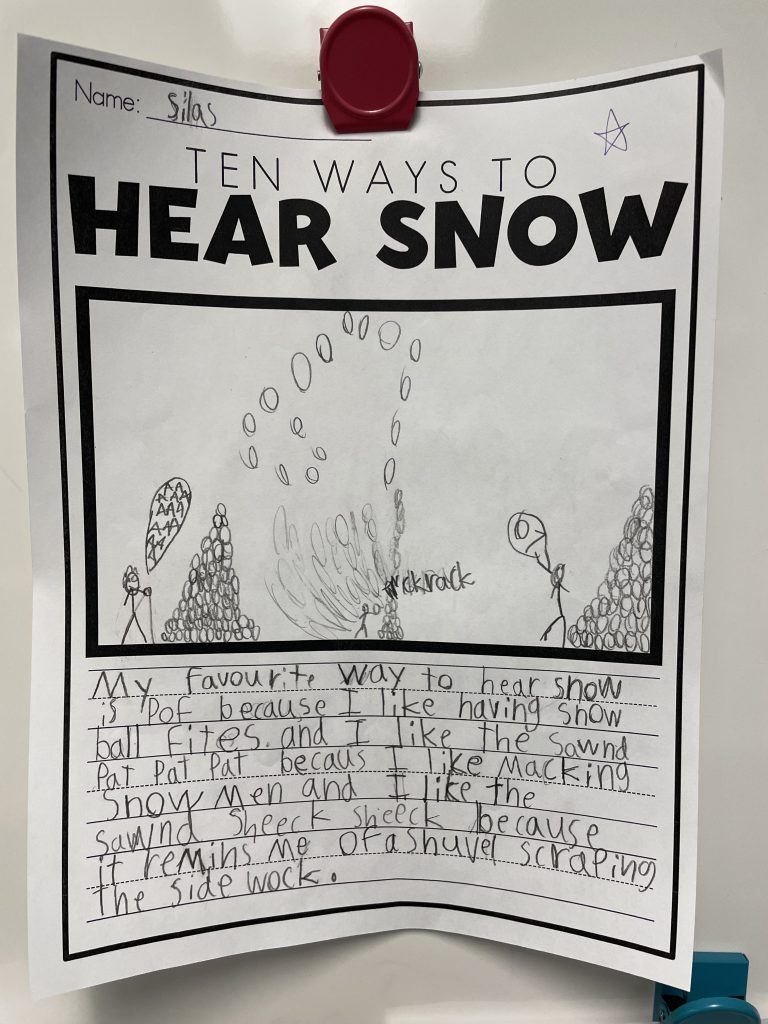 Name: Silas
TEN WAYS TO
HEAR SNOW
AAAAAAAA
ckrack
My favourite way to hear snow
is Pof because I like having snow
ball fites. and I like the sawnd
Pat Pat Pat becaus I like macking
Snow men and I like the
sawnd sheeck sheeck because
it remihs me of a shuvel scraping
the side wock.